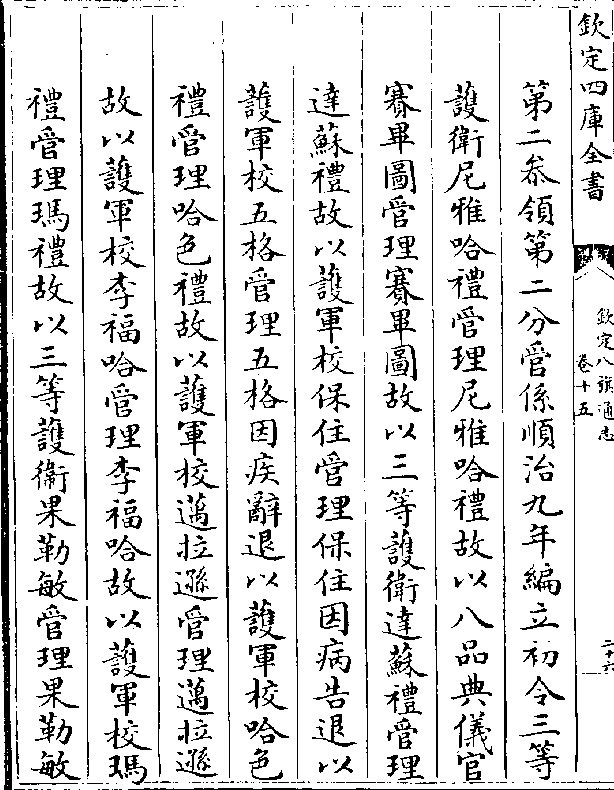 欽定四庫全書
欽定八旗通志
卷十五
二十六
第二叅領第二分管係順治九年編立初令三等
護衛尼雅哈禮管理尼雅哈禮故以八品典儀官
賽畢圖管理賽畢圖故以三等護衛達蘇禮管理
達蘇禮故以護軍校保住管理保住因病告退以
護軍校五格管理五格因疾辭退以護軍校哈色
禮管理哈色禮故以護軍校邁拉遜管理邁拉遜
故以護軍校李福哈管理李福哈故以護軍校瑪
禮管理瑪禮故以三等護衛果勒敏管理果勒敏